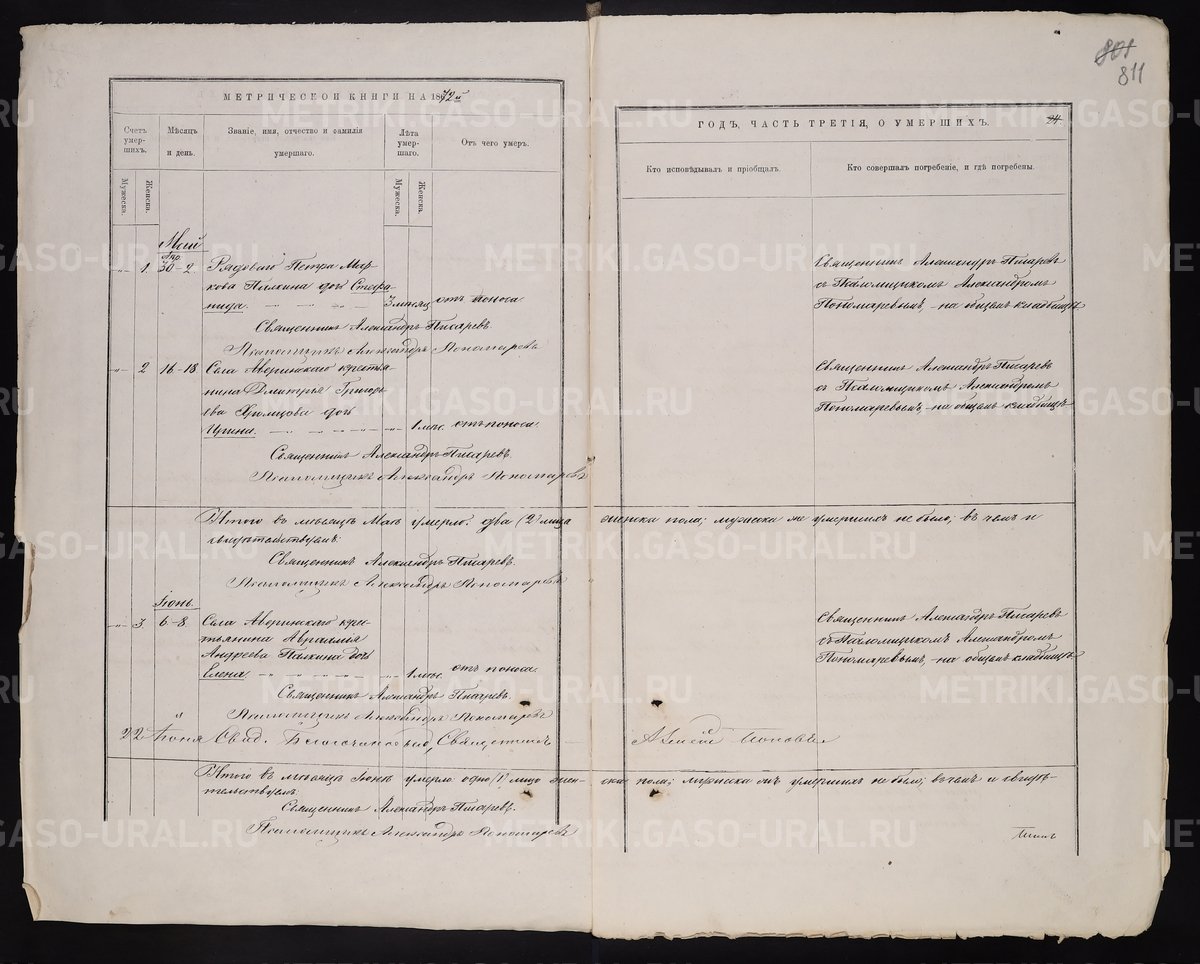 801
811
МЕТРИЧЕСКОЙ КНИГИ НА 1872й
ГОДЪ, ЧАСТЬ ТРЕТІЯ, О УМЕРШИХЪ.
24.
Счетъ умер-
шихъ.
Мѣсяцъ
и день.
Званіе, имя, отчество и фамилія
умершаго.
Лѣта
умер-
шаго.
Отъ чего умеръ.
Кто исповѣдывалъ и пріобщалъ.
Кто совершалъ погребеніе, и гдѣ погребены.
Мужеска.
Женска.
Мужеска.
Женска.
Май
1. 30-2.
Рядоваго Петра Мар-
кова Палкина дочь Стефа-
нида.
3 мѣсяц
отъ поноса
Священникъ Александръ Писаревъ
съ Псаломщикомъ Александромъ
Пономаревымъ, на общемъ кладбищѣ
Священникъ Александръ Писаревъ.
Псаломщикъ Александръ Пономаревъ
2 16-18
Села Аверинскаго крестья-
нина Димитрія Григорь-
ева дочь
Ирина.
1 мѣс.
отъ поноса.
Священникъ Александръ Писаревъ
съ Псаломщикомъ Александромъ
Пономаревымъ, на общемъ кладбищѣ
Священникъ Александръ Писаревъ.
Псаломщикъ Александръ Пономаревъ
Итого въ мѣсяцѣ Маѣ умерло: два (2) лица женска пола; мужеска же умершихъ не было; въ чемъ и
свидѣтельствуемъ:
Священникъ Александръ Писаревъ.
Псаломщикъ Александръ Пономаревъ
Іюнь.
3 6-8.
Села Аверинскаго крес-
тьянина Авраамія
Андреева Палкина дочь
Елена.
1 мѣс.
отъ поноса.
Священникъ Александръ Писаревъ
съ Псаломщикомъ Александромъ
Пономаревымъ, на общемъ кладбищѣ
Священникъ Александръ Писаревъ.
Псаломщикъ Александръ Пономаревъ
22 Іюня Священникъ
Итого въ мѣсяцѣ Іюнѣ умерло одно (1) лицо женска пола; мужеска же умершихъ не было; въ чемъ и свидѣ-
тельствуемъ:
Священникъ Александръ Писаревъ.
Псаломщикъ Александръ Пономаревъ
METRIKI.GASO-URAL.RU